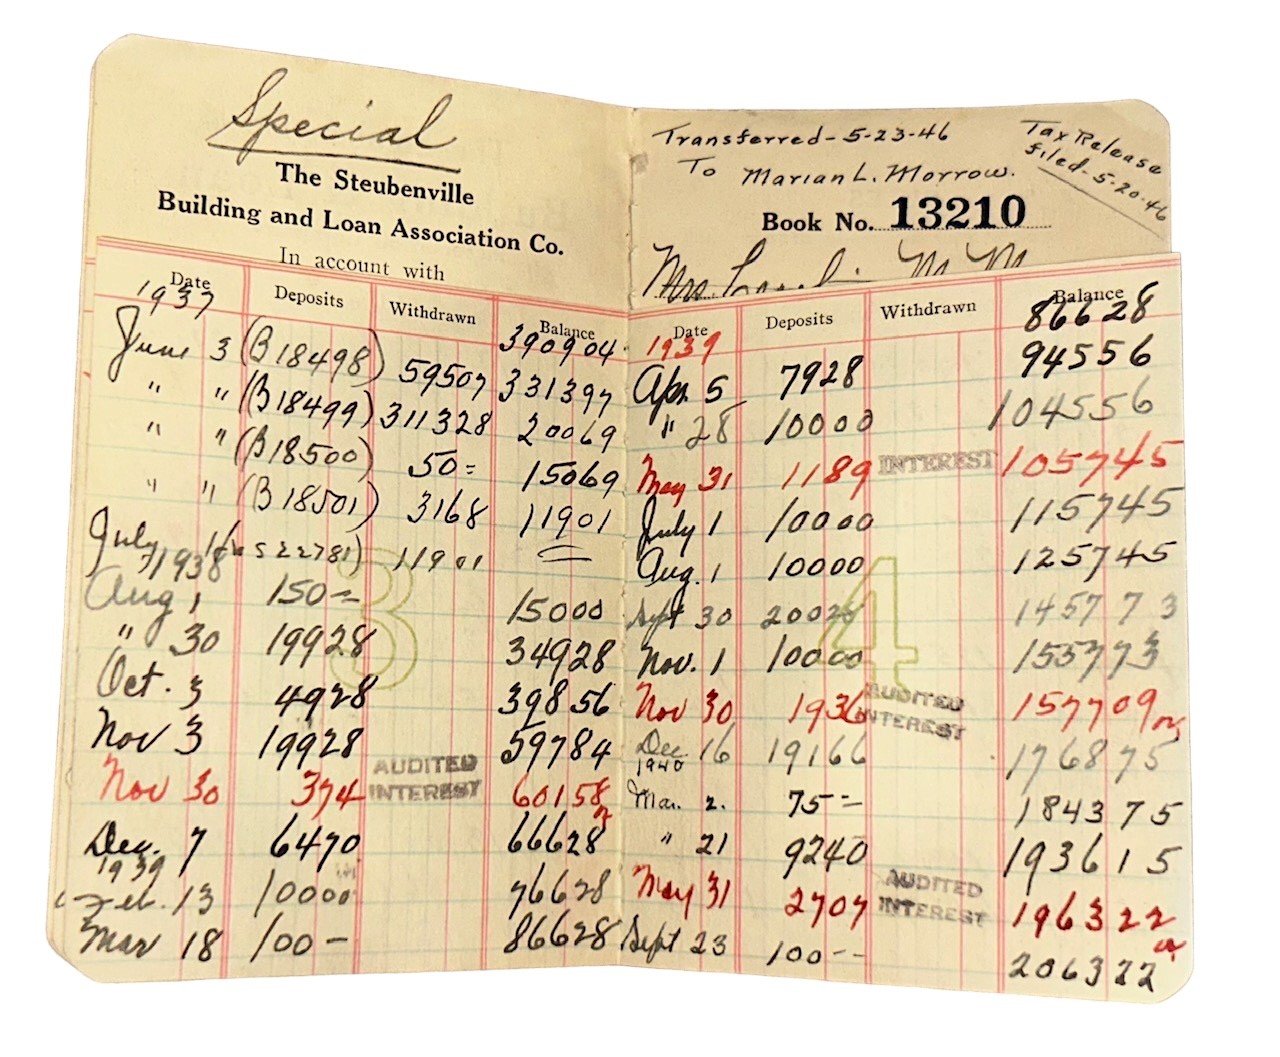 Special
The Steubenville
Building and Loan Association Co.
In account with
Date Deposits Withdrawn Balance
1937 390904
June 3 (B18498) 59507 331397
" " (B18499) 311328 20069
" " (B18500) 50= 15069
" " (B18501) 3168 11901
July 16 S22781) 11901
1938
Aug 1 150= 15000
" 30 19928 34928
Oct. 3 4928 39856
Nov 3 19928 59784
Nov 30 374 AUDITED INTEREST 60158
Dec. 7 6470 66628
1939
Feb. 13 10000 76628
Mar 18 100- 86628
3
Transferred-5-23-46
To Marian L. Morrow.
Tax Release
filed-5-20-46
Book No. 13210
Mrs
Date Deposits Withdrawn Balance
1939 86628
Apr 5 7928 94556
" 28 10000 104556
May 31 1189 INTEREST 105745
July 1 10000 115745
Aug. 1 10000 125745
Sept 30 20028 145773
Nov. 1 10000 155773
Nov 30 1936 AUDITED INTEREST 157709
Dec. 16 19166 176875
1940
Mar. 2. 75-- 184375
" 21 9240 193615
May 31 2707 AUDITED INTEREST 196322
Sept 23 100-- 206322
4